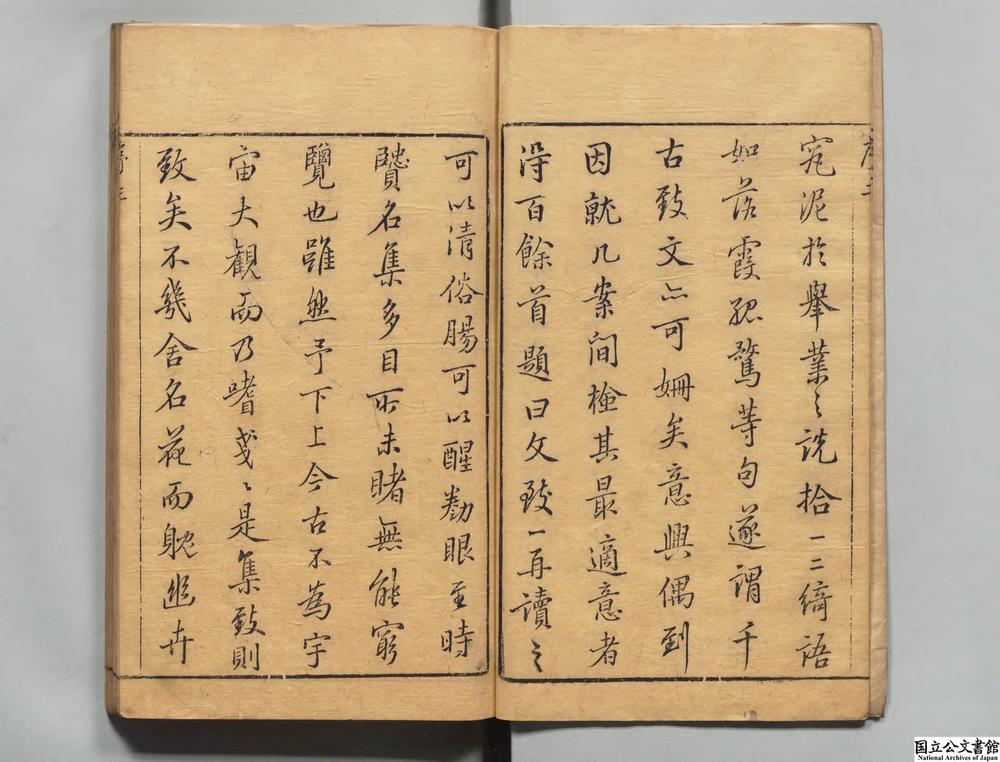 究泥於舉業之說拾一二綺語
如落霞孤鶩等句遂謂千
古致文亦可姍矣意興偶到
因就几案間檢其最適意者
得百餘首題曰文致一再讀之
可以清俗腸可以醒勸眼至時
賢名集多目所未睹無能窮
覽也雖然予下上今古不為宇
宙大觀而乃嗜戔〻是集致則
致矣不幾舍名花而躭幽卉
国立公文書館
National Archives of Japan